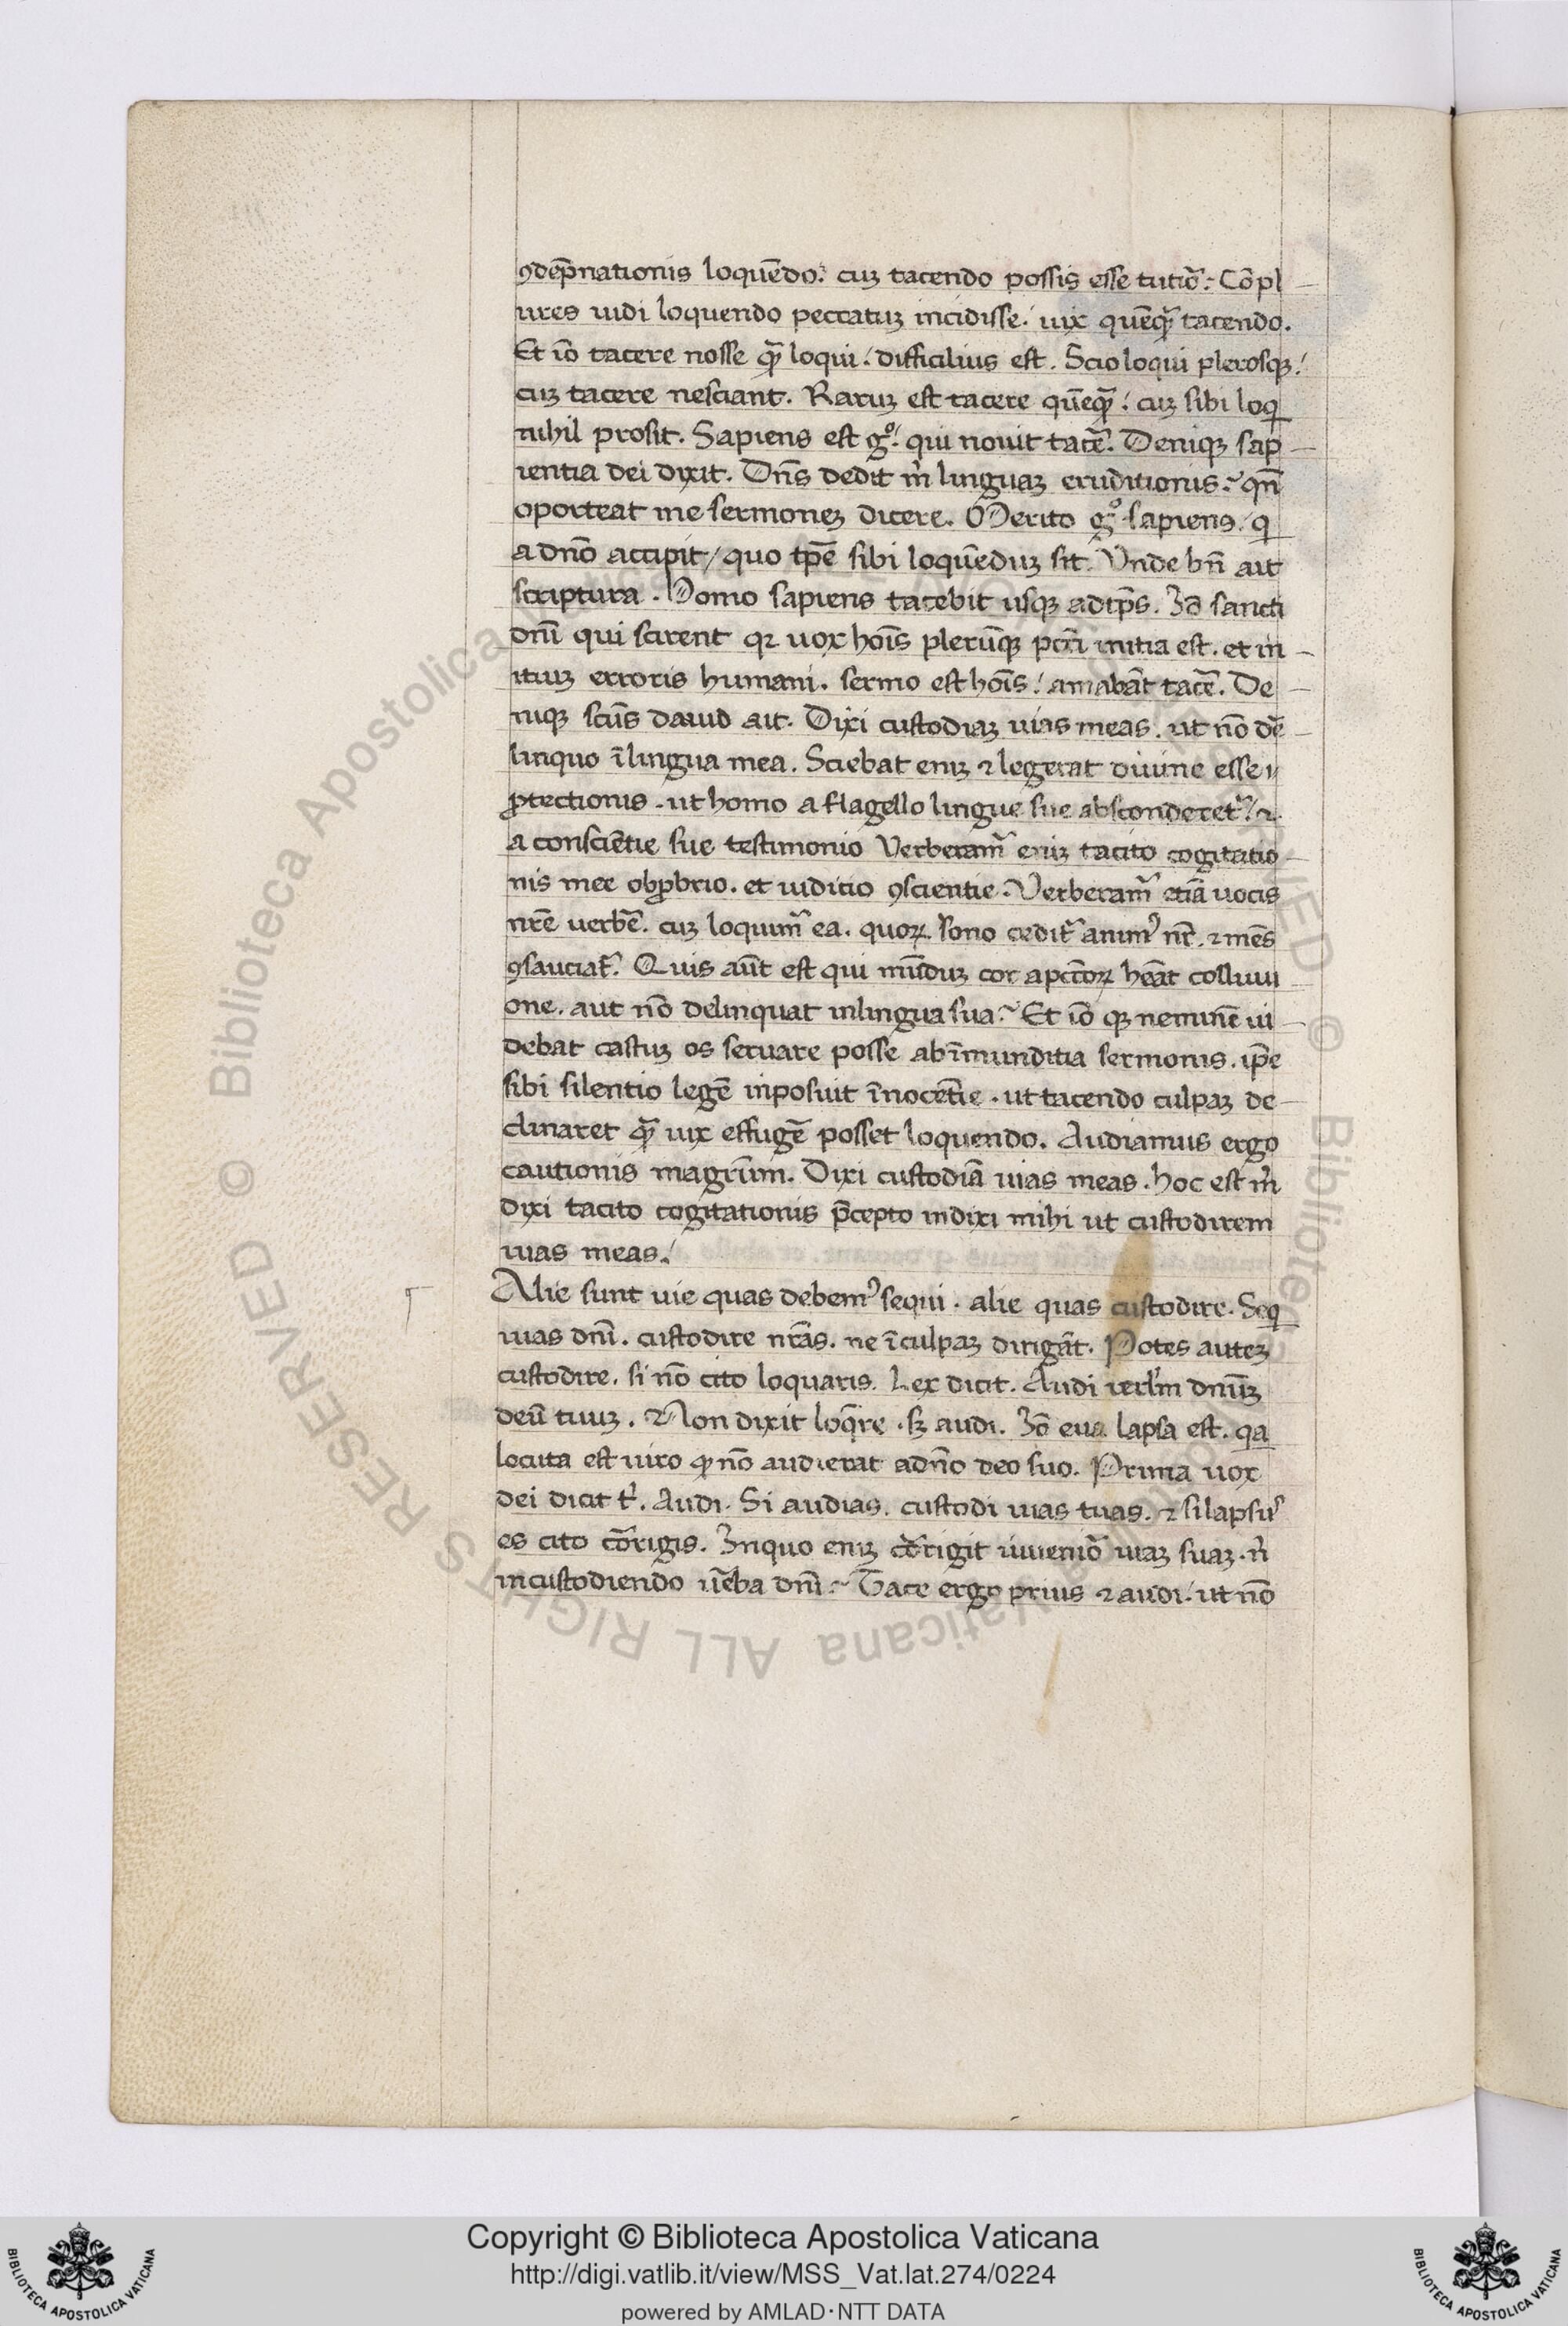 ꝯdep̄nationis loquēdo: cuꝫ tacendo possis esse tutiō: Cō pl
ures uidi loquendo peccatuꝫ incidisse: uix quēqᷓ tacendo.
Et iō tacere nosse qᷓ loqui: difficilius est. Scio loqui plerosqꝫ:
cuꝫ tacere nesciant. Raruꝫ est tacere quēqᷓ: cuꝫ sibi loq̲
nihil prosit. Sapiens est gº: qui nouit tacē. Deniqꝫ sap
ientia dei dixit. Dn̄s dedit m̍ linguaꝫ eruditionis: qn̄
oporteat me sermoneꝫ dicere. Merito gº sapiens / q̲
a dn̄o accipit / quo tp̄e sibi loquēduꝫ sit. Vnde bn̄ ait
scriptura. Homo sapiens tacebit usqꝫ ad tp̄s. Iō sancti
dn̄i qui scirent qꝛ uox hoīs plerūqꝫ pctī initia est. et in
ituꝫ erroris humani. sermo est hoīs: amabāt tacē. De
niqꝫ scūs dauid ait. Dixi custodiaꝫ uias meas. ut nō dē
linquo ī lingua mea. Sciebat eniꝫ ⁊ legerat diuine esse
ꝓtectionis. ut homo a flagello lingue sue absconderet᷑: ⁊
a consciētie sue testimonio Verberam᷑ eniꝫ tacito cogitatio
nis mee obꝓbrio. et iuditio ꝯscientie. Verberam᷑ etiā uocis
nr̄e uerbē. cuꝫ loquim᷑ ea. quoꝝ sono cedit᷑ animꝰ nr̄. ⁊ mēs
ꝯsauciat᷑. Quis aūt est qui mūduꝫ cor a pctōꝝ hēat colluui
one. aut nō delinquat in lingua sua: Et iō qꝫ neminē ui
debat castuꝫ os seruare posse ab īmunditia sermonis. ip̄e
sibi silentio legē inposuit īnocētie. ut tacendo culpaꝫ de
clinaret qᷓ uix effugē posset loquendo. Audiamus ergo
cautionis magr̄um. Dixi custodiā uias meas. hoc est m̍
dixi tacito cogitationis p̄cepto indixi mihi ut custodirem
uias meas:
Alie sunt uie quas debemꝰ sequi. alie quas custodire. Seq̲
uias dn̄i. custodire nrās. ne ī culpaꝫ dirigāt. Potes auteꝫ
custodire. si nō cito loquaris. Lex dicit. Audi isrl̄m dnūꝫ
deū tuuꝫ. Non dixit loq̄re. sꝫ audi. Iō eua lapsa est. q̲a
locuta est uiro qᷓ nō audierat a dn̄o deo suo. Prima uox
dei dicit t̍. Audi. Si audias. custodi uias tuas. ⁊ si lapsuꝰ
es cito cōrigis. In quo eniꝫ cōrigit iuueniō uiaꝫ suaꝫ. n̍
in custodiendo ūba dn̄i: Tace ergo prius ⁊ audi. ut nō
Copyright © Biblioteca Apostolica Vaticana
http://digi.vatlib.it/view/MSS_Vat.lat.274/0224
powered by AMLAD·NTT DATA
BIBLIOTECA APOSTOLICA VATICANA
BIBLIOTECA APOSTOLICA VATICANA